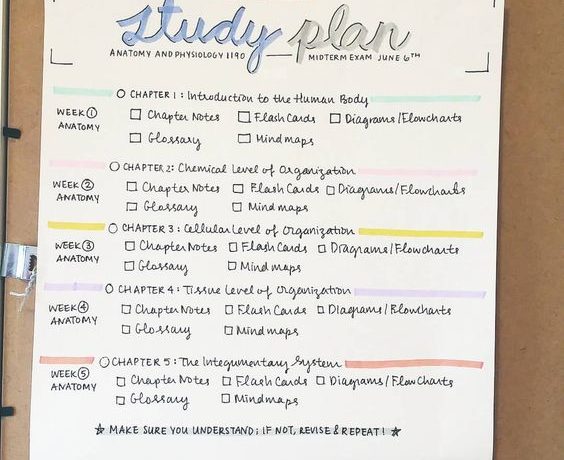 study plan
ANATOMY AND PHYSIOLOGY 1190 MIDTERM EXAM JUNE 6TH
CHAPTER 1: Introduction to the Human Body
WEEK 1 ANATOMY
Chapter Notes Flash Cards Diagrams/Flowcharts
Glossary Mind maps
CHAPTER 2: Chemical Level of Organization
WEEK 2 ANATOMY
Chapter Notes Flash Cards Diagrams/Flowcharts
Glossary Mind maps
CHAPTER 3: Cellular Level of Organization
WEEK 3 ANATOMY
Chapter Notes Flash Cards Diagrams/Flowcharts
Glossary Mind maps
CHAPTER 4: Tissue Level of Organization
WEEK 4 ANATOMY
Chapter Notes Flash Cards Diagrams/Flowcharts
Glossary Mind maps
CHAPTER 5: The Integumentary System
WEEK 5 ANATOMY
Chapter Notes Flash Cards Diagrams/Flowcharts
Glossary Mindmaps
MAKE SURE YOU UNDERSTAND; IF NOT, REVISE & REPEAT!